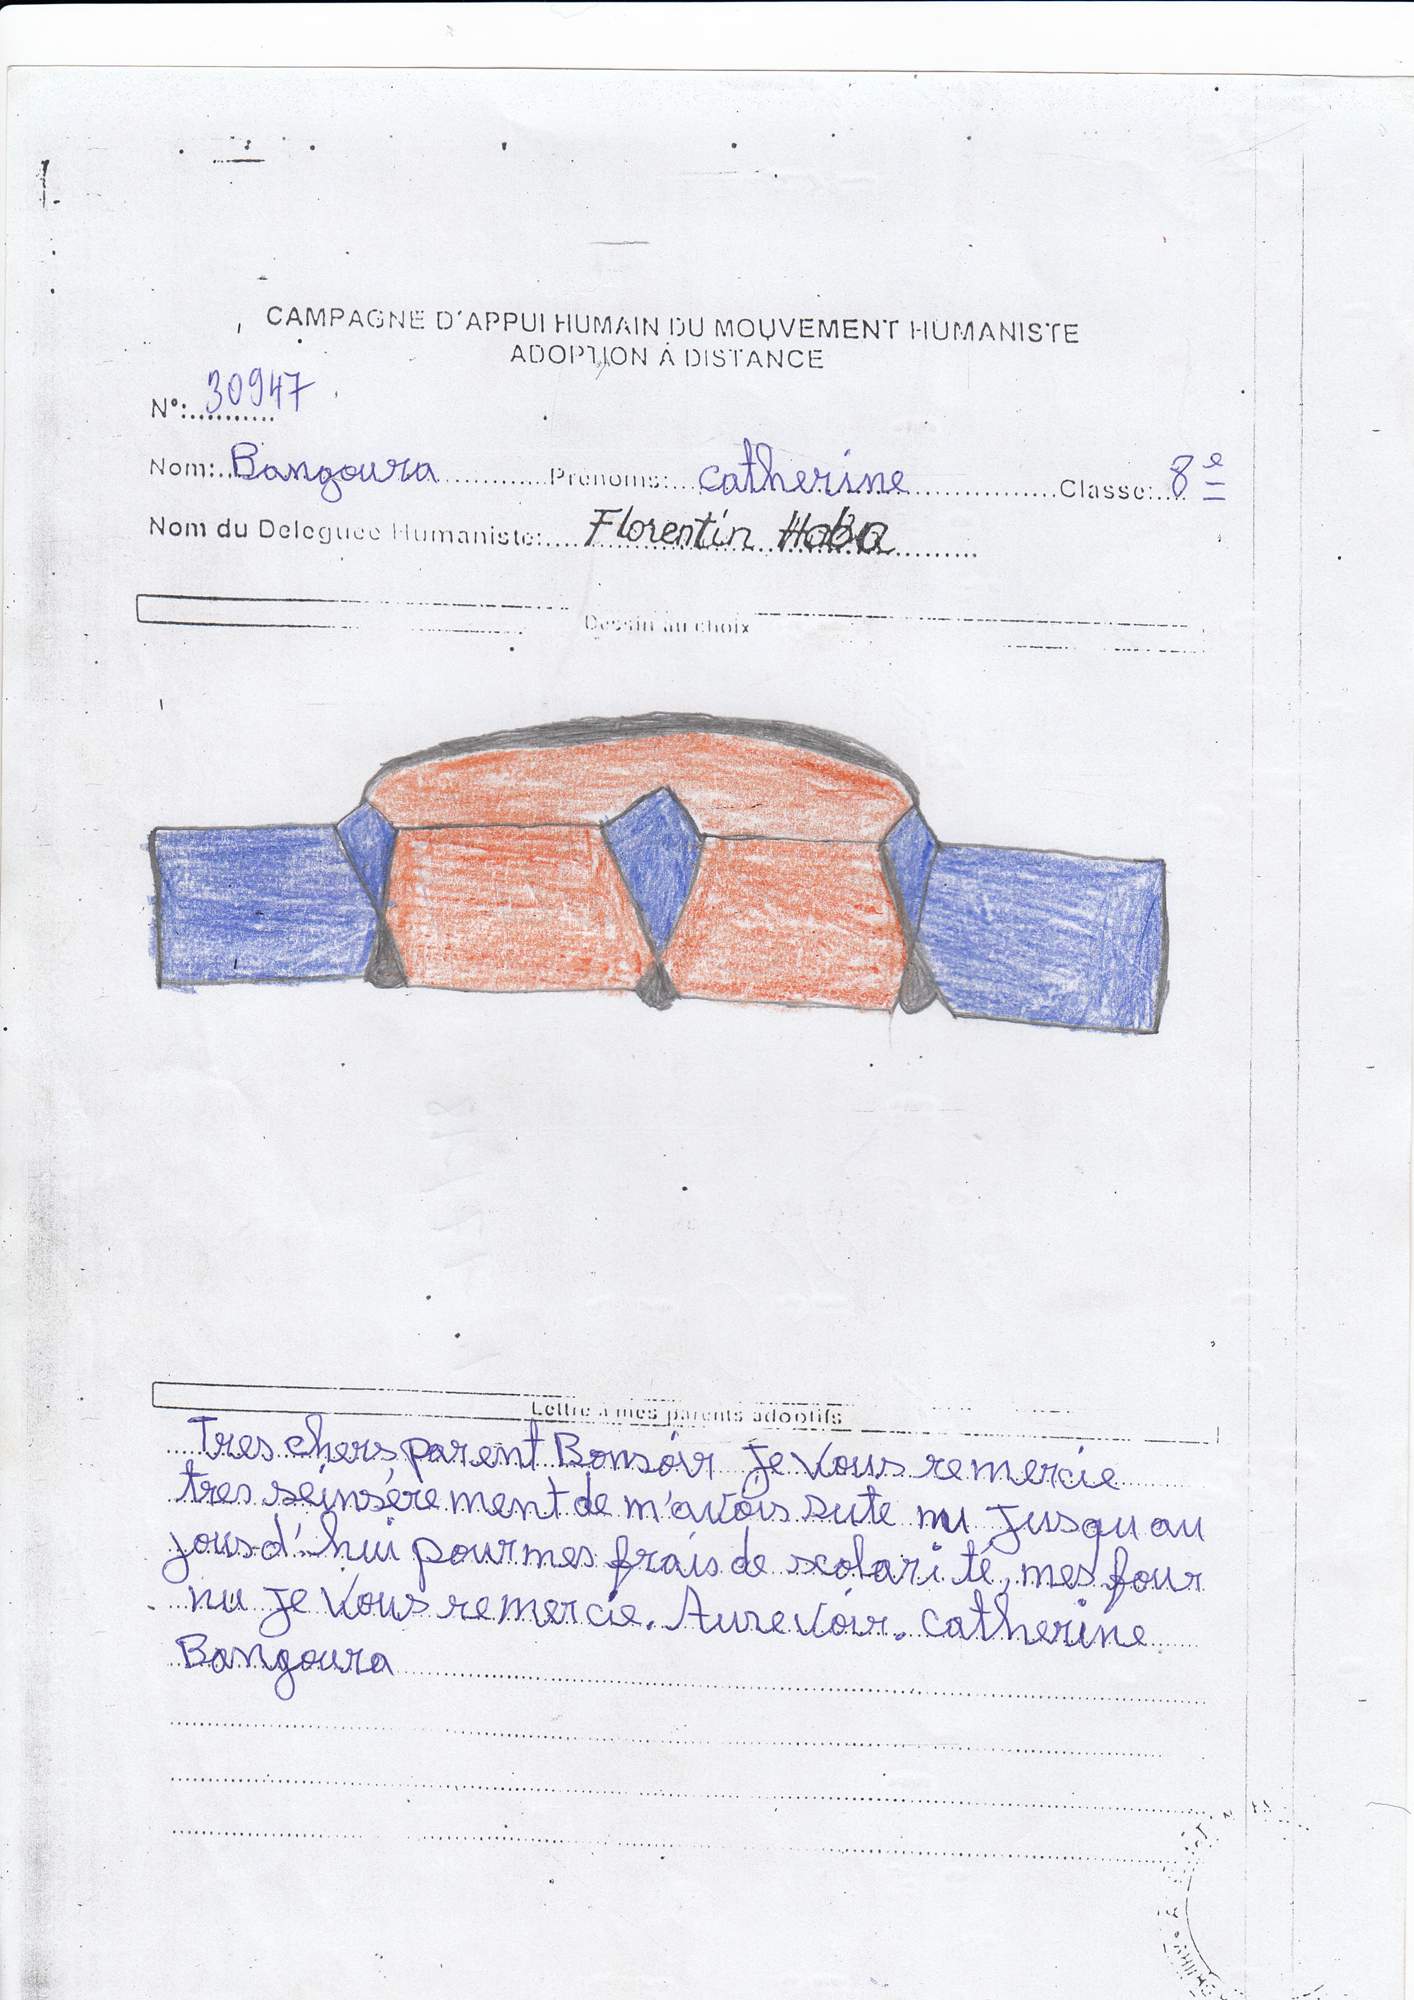 CAMPAGNE D'APPUI HUMAIN DU MOUVEMENT HUMANISTE
ADOPTION À DISTANCE
N°: 30947
Nom: Bangoura Prénoms: Catherine Classe: 8e
Nom du Déléguée Humaniste: Florentin Haba
Dessin au choix
Lettre à mes parents adoptifs
Tres chers parent Bonsoir Je Vous remercie
tres seinsérement de m'avois sute nu Jusqu au
jours d'hui pour mes frais de scolari té, mes four
nu Je Vous remercie. Aurevoir. Catherine
Bangoura